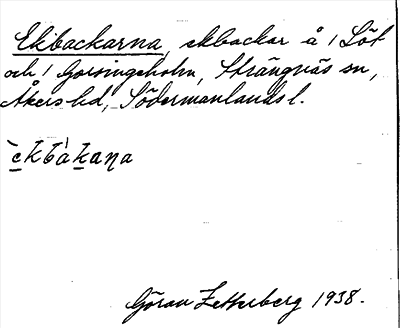 Ekbackarna, ekbackar å / Löt
och / Gorsingeholm, Strängnäs sn,
Åkers hd, Södermanlands l.
èkbàkaṇa
Göran Zetterberg 1938.